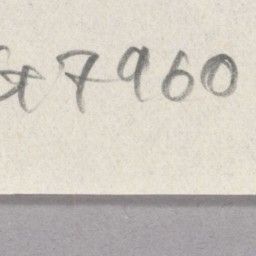 st 7960